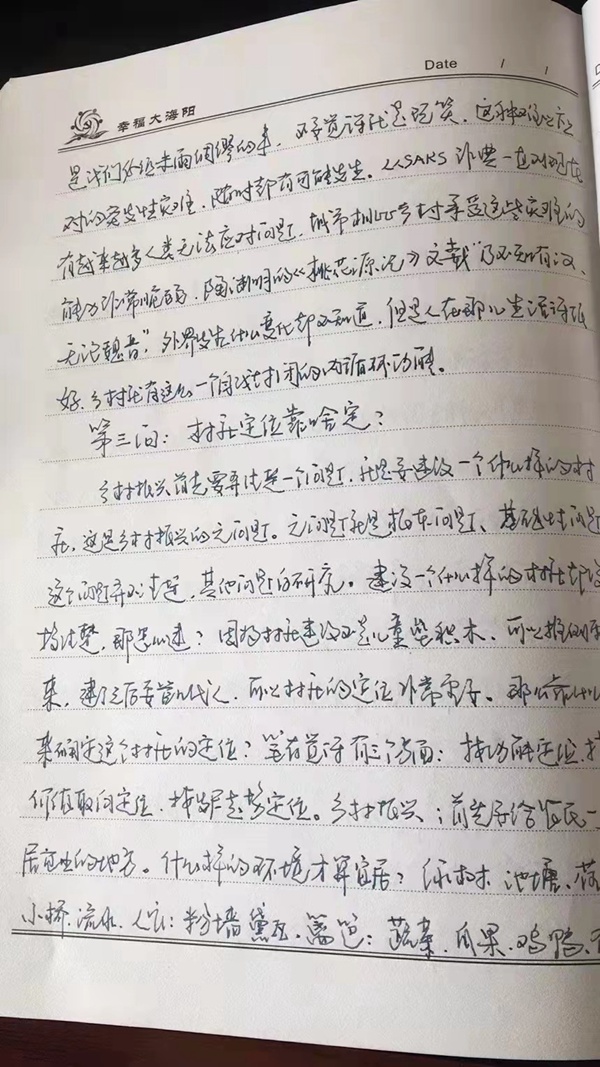 Date / /
幸福大海阳
是我们外在未雨绸缪的事,不要觉得我是玩笑,这种
对的突发性灾难,随时都有可能发生。从SARS非典一直到现在
有越来越多人类无法应对问题,城市相比乡村承受这些灾难的
能力非常脆弱,陶渊明的《桃花源记》文载“乃不知有汉、
无论魏晋”,外界发生什么变化都不知道,但是人在那儿生活得很
好,乡村就有这么一个自我封闭的内循环功能。
第三问:村庄定位靠啥定?
乡村振兴首先要弄清楚一个问题,就是要建设一个什么样的村
庄,这是乡村振兴的元问题。元问题就是根本问题、基础性问题
这个问题弄不清楚,其他问题白研究。建设一个什么样的村庄都没
搞清楚,那怎么建?因为村庄建设不是儿童垒积木,可以推倒重
来,建了之后要管几代人,所以村庄的定位非常重要。那么靠什么
来确定这个村庄的定位?笔者觉得有三个方面:按功能定位,按
价值取向定位,按发展态势定位。乡村振兴,首先要给农民一
居宜业的地方。什么样的环境才算宜居?绿树、池塘、荷
小桥、流水、人家;粉墙黛瓦、篱笆;蔬菜、瓜果、鸡鸭、